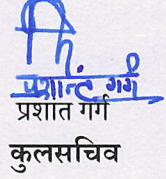 प्रशान्त गर्ग
प्रशात गर्ग
कुलसचिव